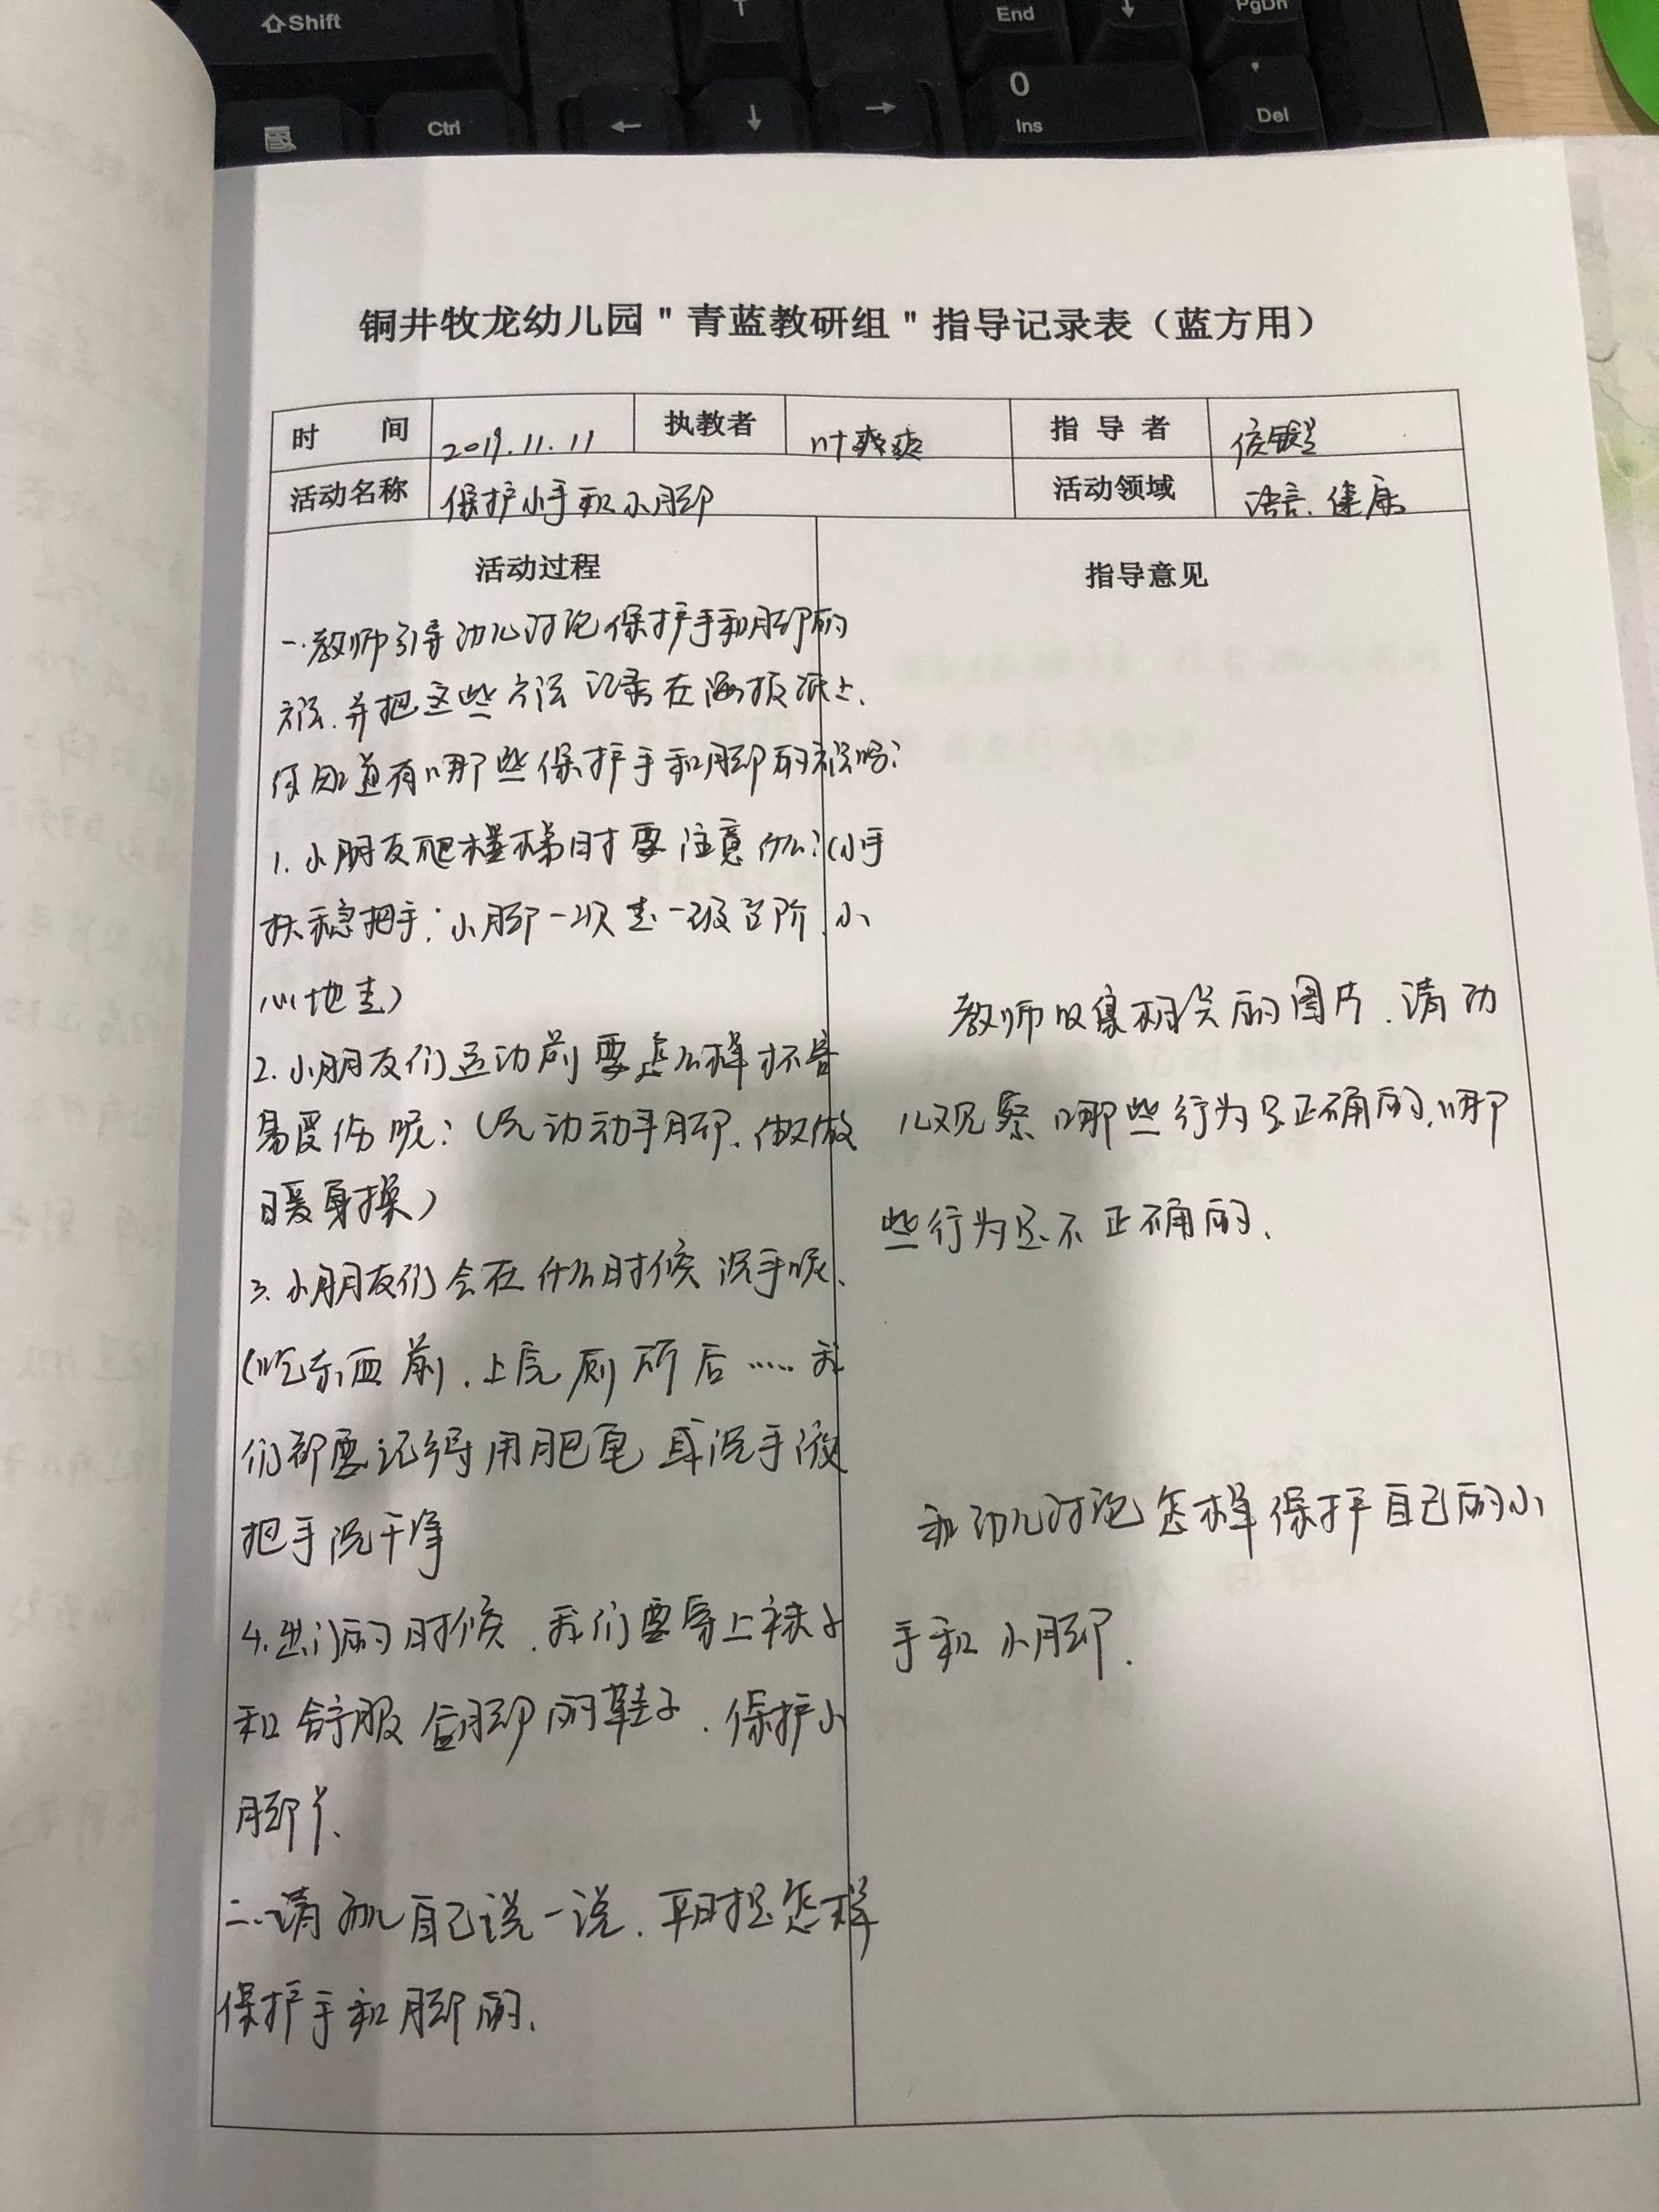 Shift
End
PgDn
Ctrl
0
Ins
Del
铜井牧龙幼儿园"青蓝教研组"指导记录表（蓝方用）
时 间 2019.11.11 执教者 叶爽爽 指导者 侯
活动名称 保护小手和小脚 活动领域 语言、健康
活动过程
一.教师引导幼儿讨论保护手和脚的
方法.并把这些方法记录在海报纸上.
你知道有哪些保护手和脚的方法吗?
1.小朋友爬楼梯时要注意什么?(小手
扶稳把手;小脚一次走一级台阶,小
心地走)
2.小朋友们运动前要怎么样才不容
易受伤呢?(先动动手脚.做做
暖身操)
3.小朋友们会在什么时候洗手呢、
(吃东西前.上完厕所后……我
们都要记得用肥皂或洗手液
把手洗干净
4.出门的时候.我们要穿上袜子
和舒服合脚的鞋子.保护小
脚丫.
二.请幼儿自己说一说.平时是怎样
保护手和脚的.
指导意见
教师收集相关的图片.请幼
儿观察哪些行为是正确的.哪
些行为是不正确的.
和幼儿讨论怎样保护自己的小
手和小脚.